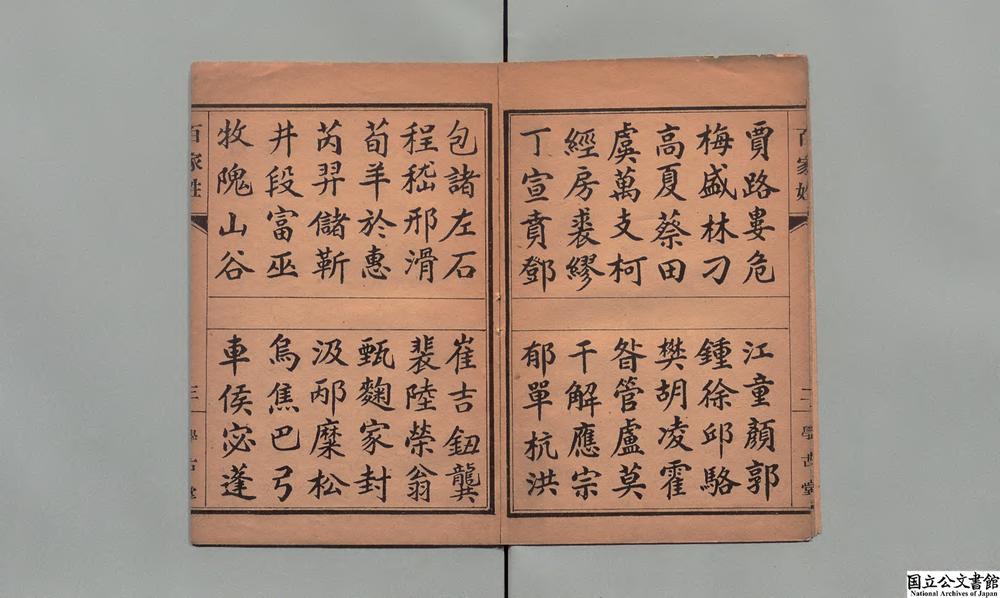 百家姓
學古堂
賈路婁危 江童顏郭
梅盛林刁 鍾徐邱駱
高夏蔡田 樊胡凌霍
虞萬支柯 昝管盧莫
經房裘繆 干解應宗
丁宣賁鄧 郁單杭洪
包諸左石 崔吉鈕龔
程嵇邢滑 裴陸榮翁
荀羊於惠 甄麴家封
芮羿儲靳 汲邴糜松
井段富巫 烏焦巴弓
牧隗山谷 車侯宓蓬
百家姓
三
學古堂
国立公文書館
National Archives of Japan